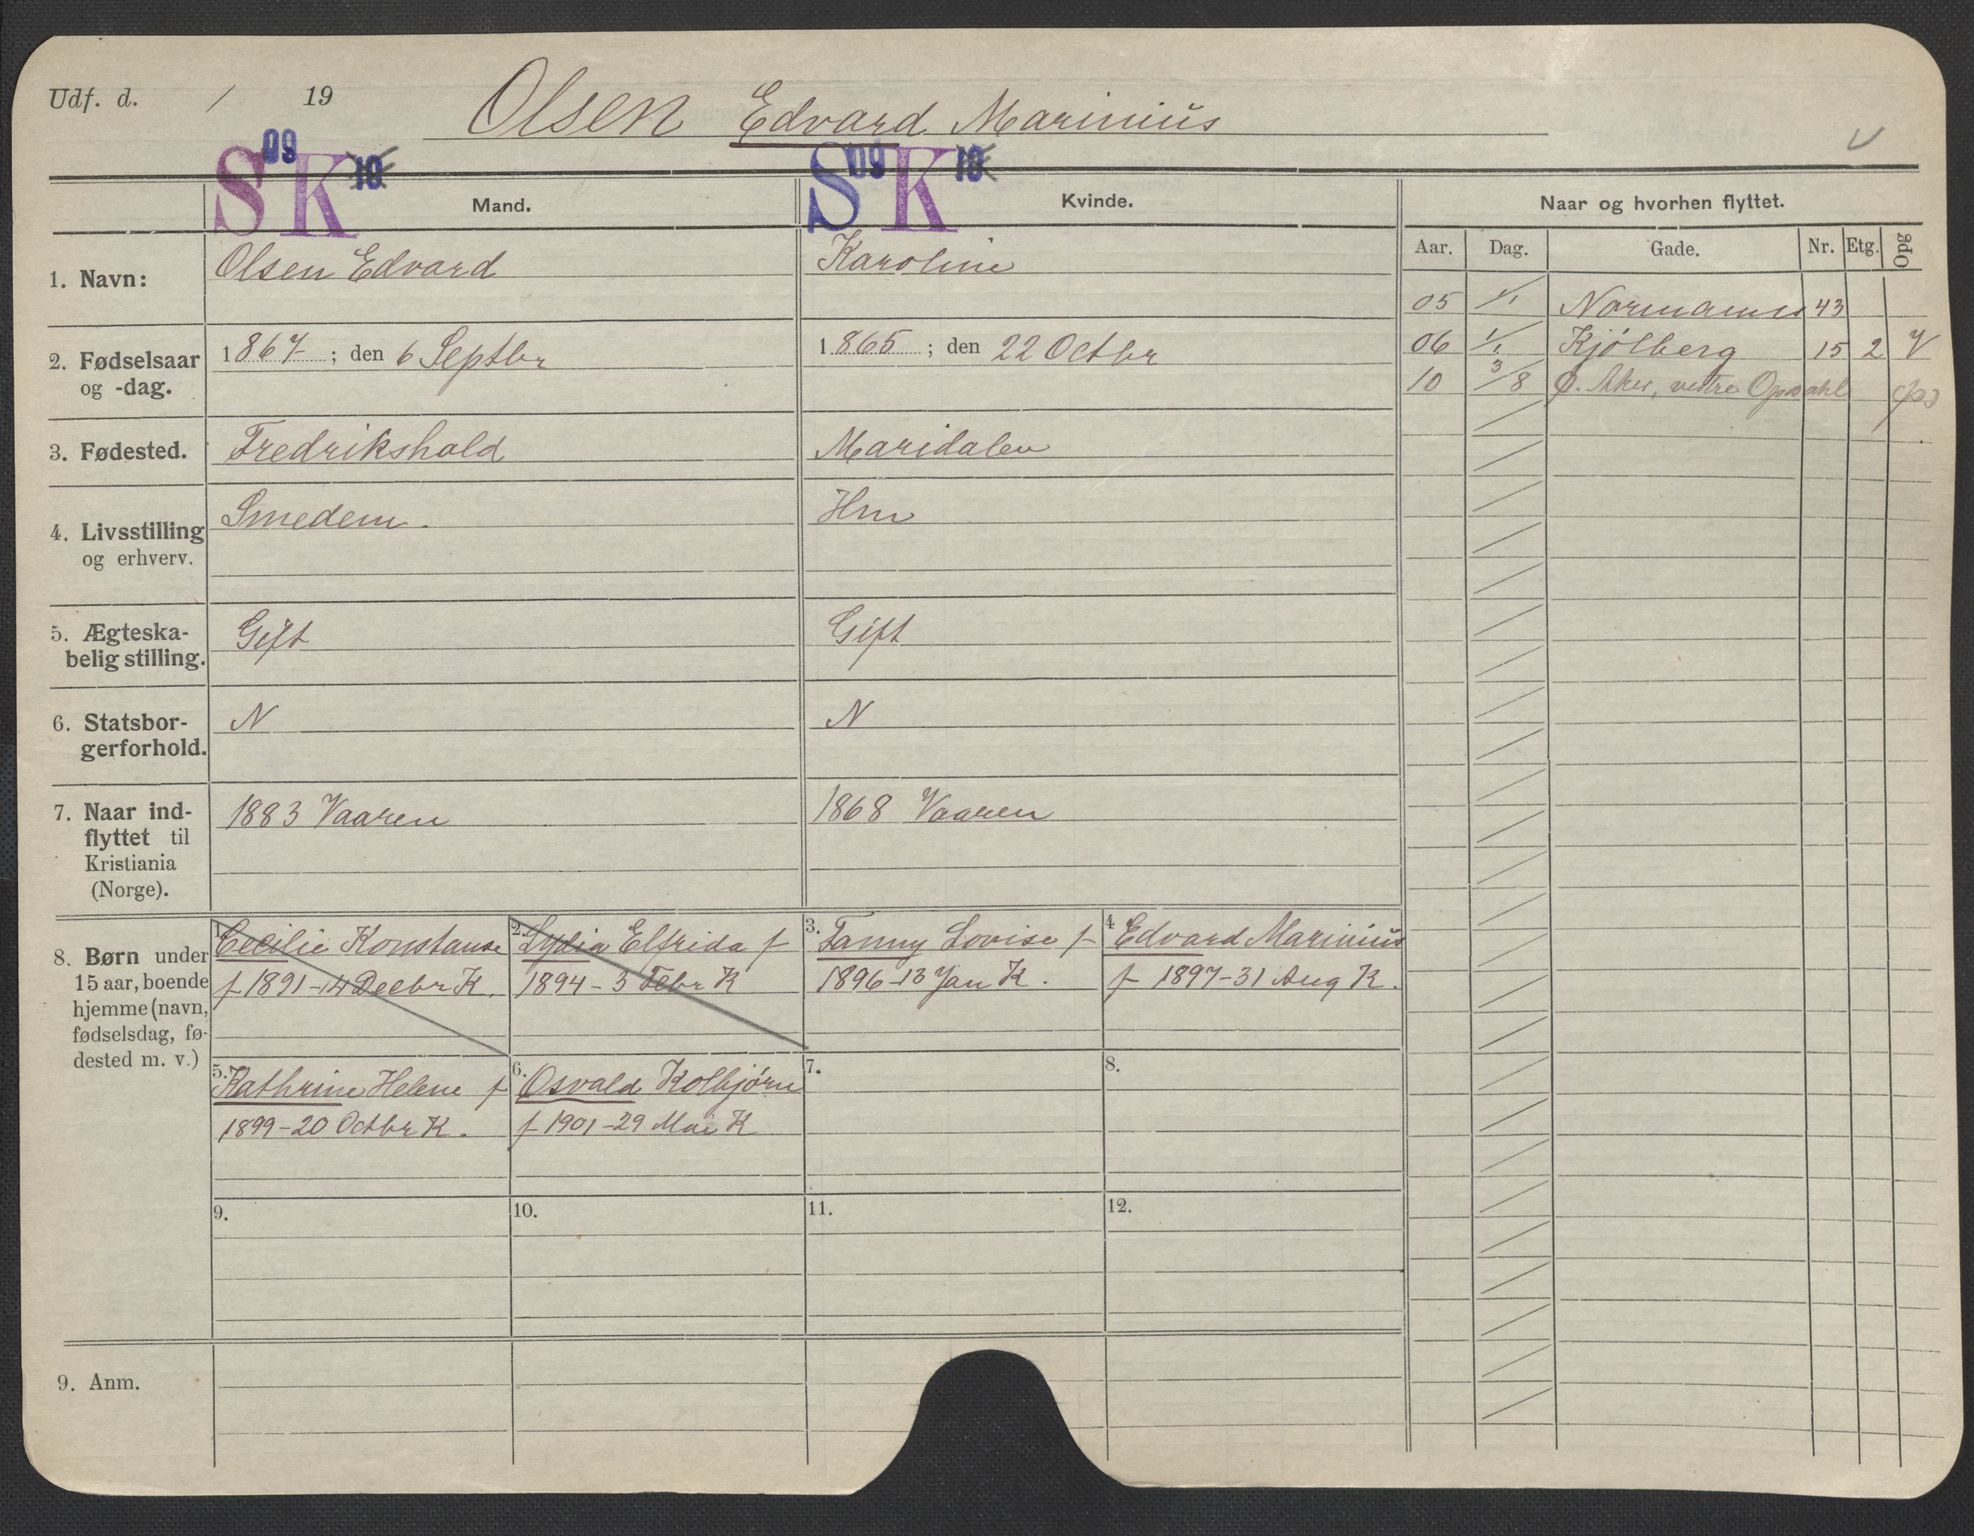 Udf. d. / 19 Olsen Edvard Marinius
S 09 K 10 Mand.
S 09 K 10 Kvinde.
Naar og hvorhen flyttet.
Aar. Dag. Gade. Nr. Etg. Opg
1. Navn: Olsen Edvard
Karoline
05 1/1 Normanns 43
2. Fødselsaar 1867 ; den 6 Septbr
og -dag.
1865 ; den 22 Octbr
06 1/1 Kjølberg 15 2 V
10 3/8 Ø. Aker, vestre Opsahl
3. Fødested. Fredrikshald
Maridalen
4. Livsstilling Smedem.
og erhverv.
Hm
5. Ægteska- Gift
belig stilling.
Gift
6. Statsbor- N
gerforhold.
N
7. Naar ind- 1883 Vaaren
flyttet til
Kristiania
(Norge).
1868 Vaaren
8. Børn under
15 aar, boende
hjemme (navn,
fødselsdag, fø-
dested m. v.)
1. Cecilie Konstanse
f 1891-14 Decbr K.
2. Lydia Elfrida f
1894-3 Febr K
3. Fanny Lovise f
1896-13 Jan K.
4 Edvard Marinius
f 1897-31 Aug K.
5. Kathrine Helene f
1899-20 Octbr K.
6. Osvald Kolbjørn
f 1901-29 Mai K
7.
8.
9.
10.
11.
12.
9. Anm.